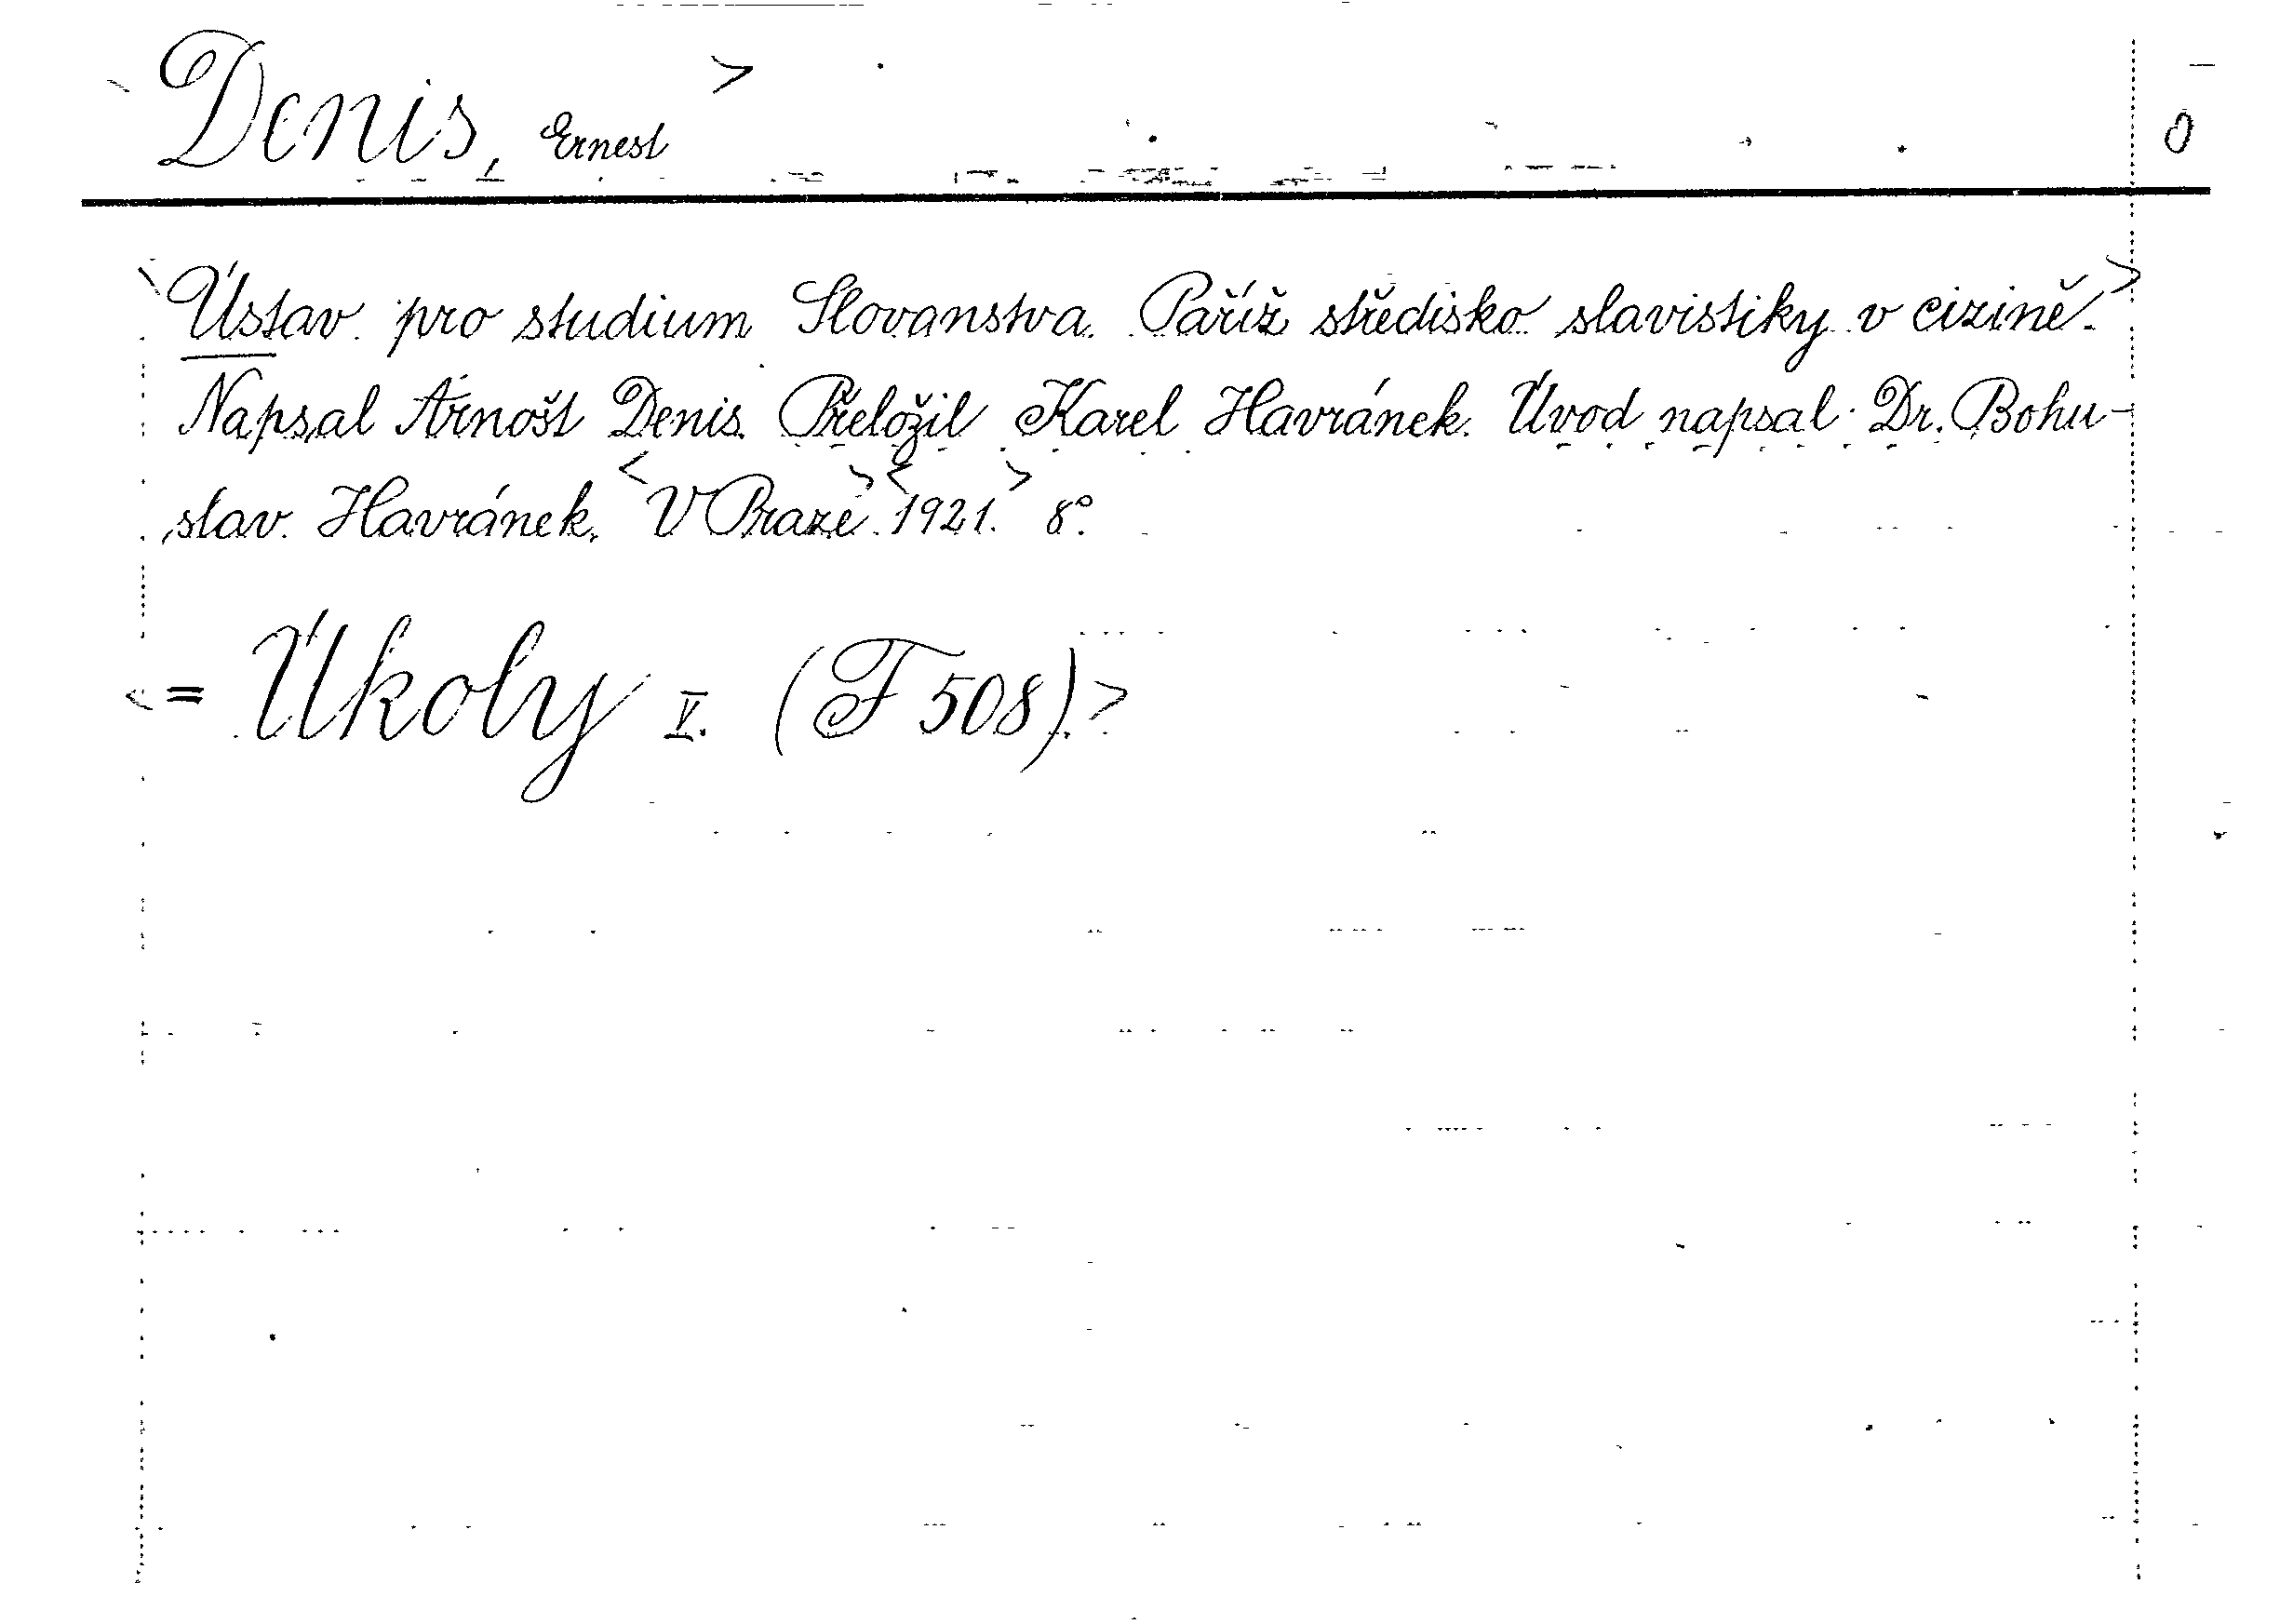 Denis, Ernest > 0
Ústav pro studium Slovanstva. Paříž středisko slavistiky v cizině.>
Napsal Arnošt Denis. Přeložil Karel Havránek. Úvod napsal Dr. Bohu-
slav Havránek. <V Praze> <1921.> 8°.
<= Úkoly V. (F 508).>